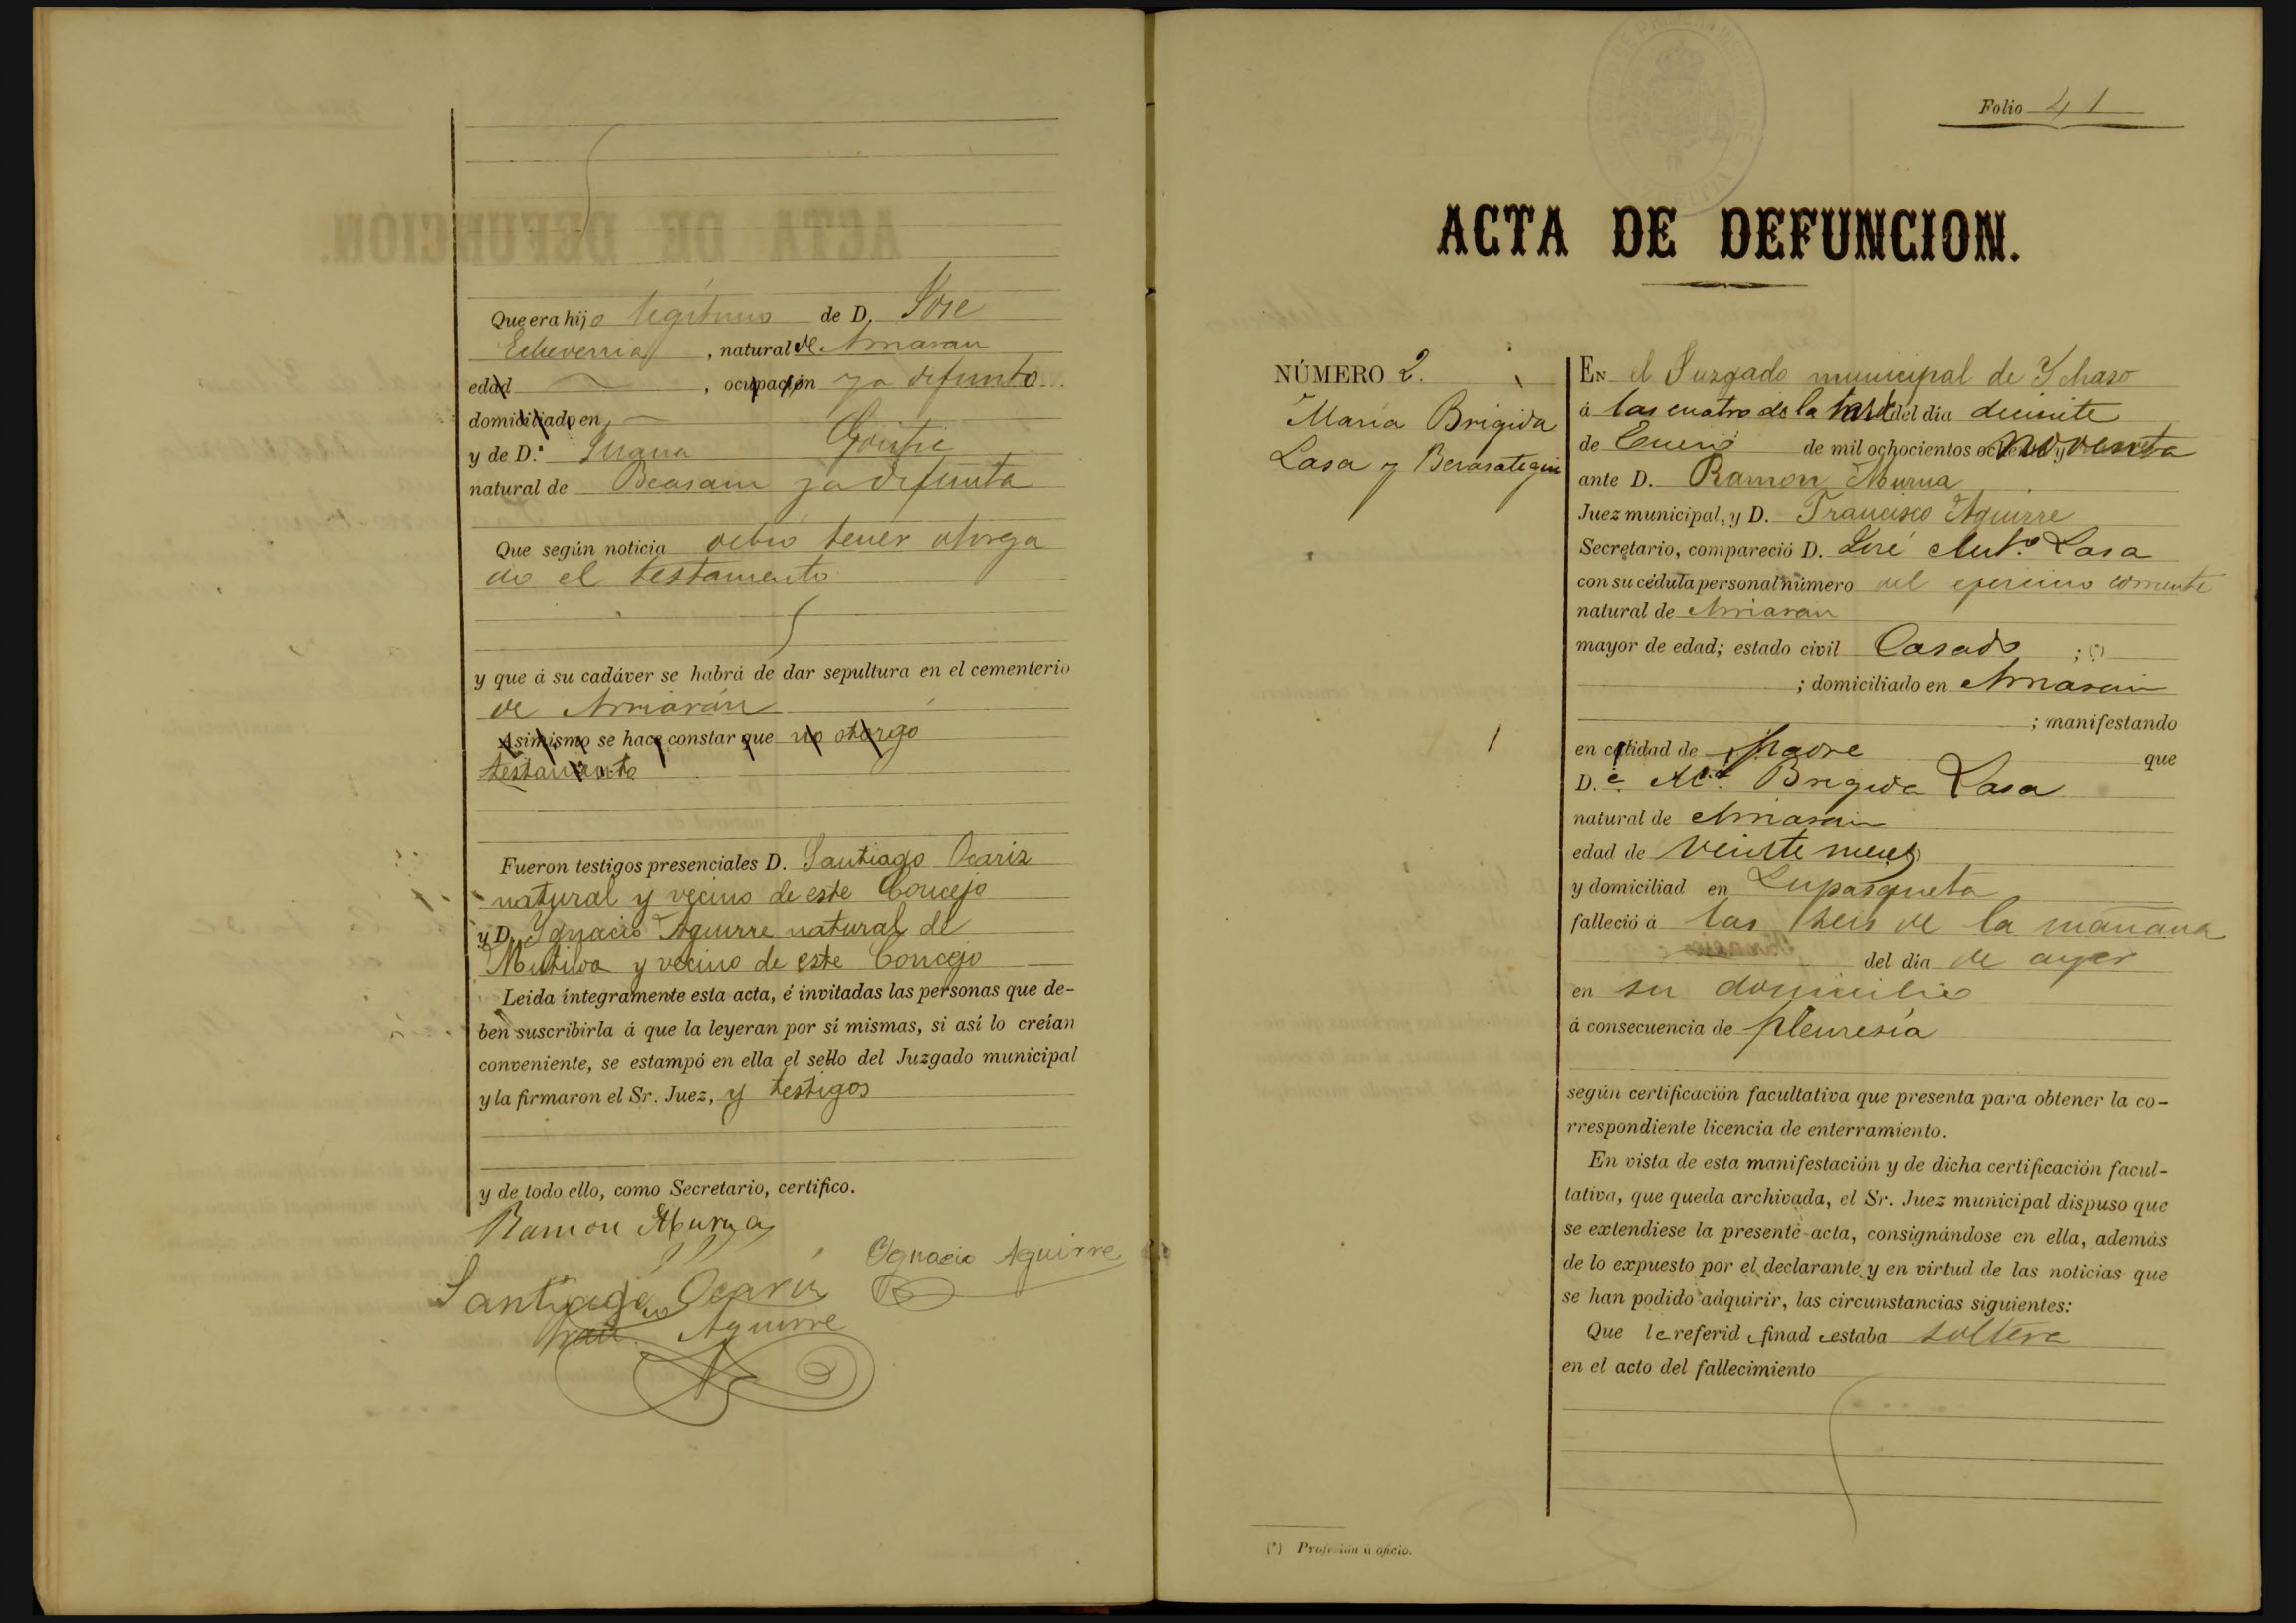 Que era hijo legítimo de D. José
Echeverria, natural de Arriaran
edad , ocupación ya difunto
domiciliado en
y de D.ª Juana
natural de Beasain ya difunta
Que según noticia debió tener otorga
do el testamento
y que á su cadáver se habrá de dar sepultura en el cementerio
de Arriarán
Asimismo se hace constar que no otorgó
testamento
Fueron testigos presenciales D. Santiago Ocariz
natural y vecino de este Concejo
y D. Ygnacio Aguirre natural de
Mutiloa y vecino de este Concejo
Leida íntegramente esta acta, é invitadas las personas que de-
ben suscribirla á que la leyeran por sí mismas, si así lo creían
conveniente, se estampó en ella el sello del Juzgado municipal
y la firmaron el Sr. Juez, y testigos
y de todo ello, como Secretario, certifico.
Ramon Murua
Ygnacio Aguirre
Santiago Ocariz
Aguirre
Folio 41
ACTA DE DEFUNCION.
NÚMERO 2.
María Brigida
Lasa y Berasategui
EN el Juzgado municipal de Ychaso
á las cuatro de la tarde del día diecisiete
de Enero de mil ochocientos noventa
ante D. Ramon Murua
Juez municipal, y D. Francisco Aguirre
Secretario, compareció D. José Ant.º Lasa
con su cédula personal número del ejercicio corriente
natural de Arriaran
mayor de edad; estado civil Casado ; (*)
; domiciliado en Arriaran
; manifestando
en calidad de Padre que
D.ª M.ª Brigida Lasa
natural de Arriaran
edad de veinte meses
y domiciliad en Lupasqueta
falleció á las seis de la mañana
del día de ayer
en su domicilio
á consecuencia de pleuresía
según certificación facultativa que presenta para obtener la co-
rrespondiente licencia de enterramiento.
En vista de esta manifestación y de dicha certificación facul-
tativa, que queda archivada, el Sr. Juez municipal dispuso que
se extendiese la presente acta, consignándose en ella, además
de lo expuesto por el declarante y en virtud de las noticias que
se han podido adquirir, las circunstancias siguientes:
Que la referida finada estaba soltera
en el acto del fallecimiento
(*) Profesión ú oficio.